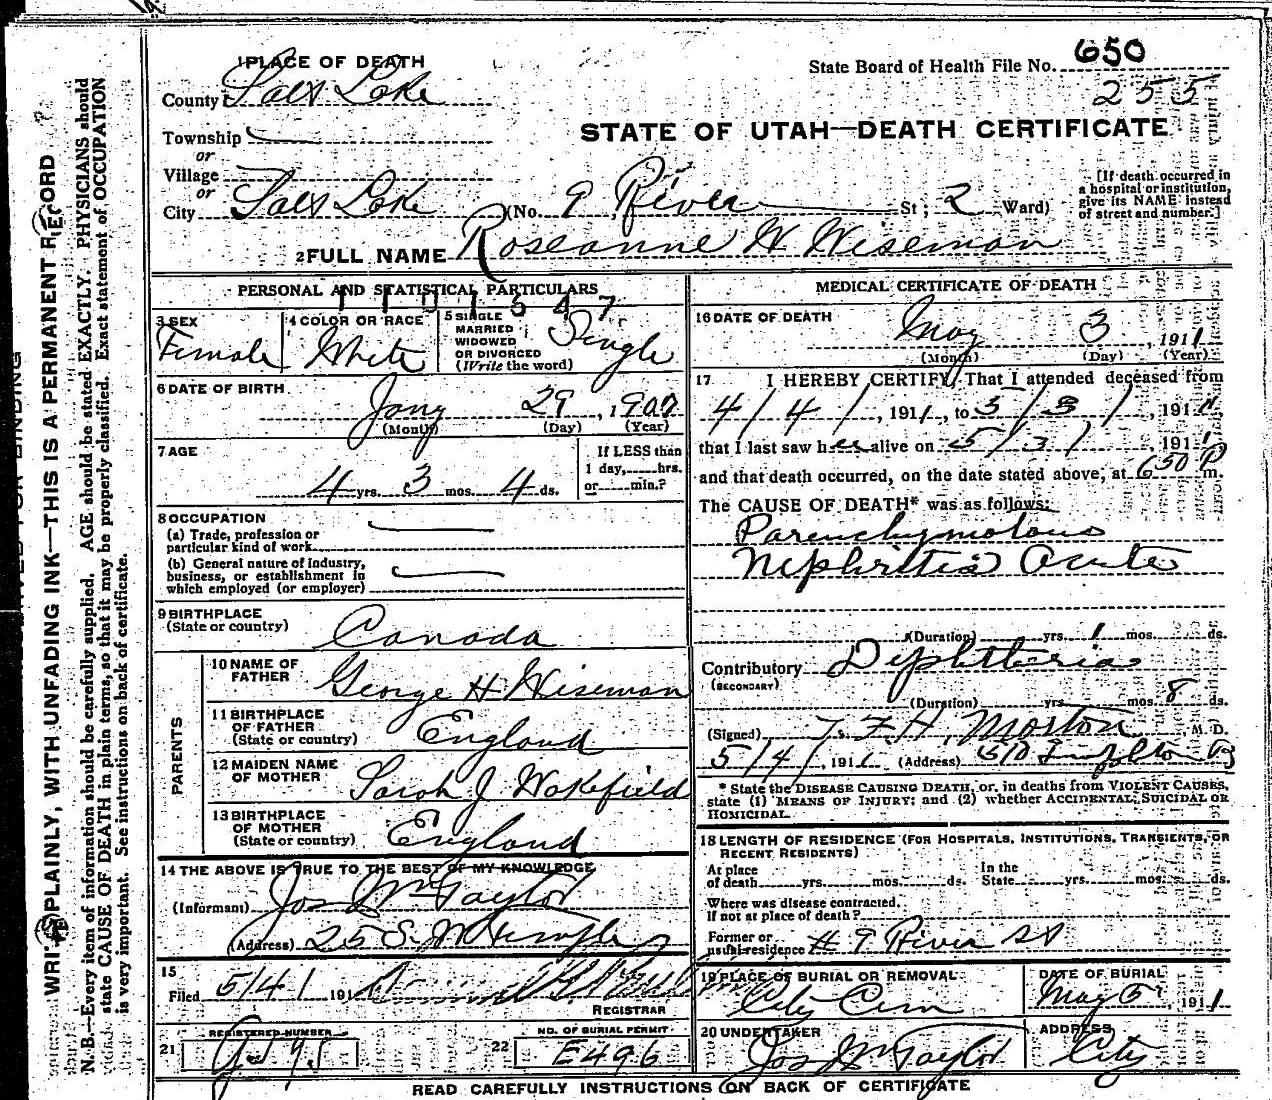 1 PLACE OF DEATH
State Board of Health File No. 650
County Salt Lake
255
Township
STATE OF UTAH—DEATH CERTIFICATE
or
Village
or
City Salt Lake (No. 9 River St; 2 Ward)
[If death occurred in a hospital or institution, give its NAME instead of street and number.]
2 FULL NAME Roseanne W Wiseman
PERSONAL AND STATISTICAL PARTICULARS
3 SEX
Female
4 COLOR OR RACE
White
5 SINGLE
MARRIED
WIDOWED
OR DIVORCED
(Write the word)
Single
6 DATE OF BIRTH
Jany 29, 1907
(Month) (Day) (Year)
7 AGE
4 yrs. 3 mos. 4 ds.
If LESS than
1 day, hrs.
or min.?
8 OCCUPATION
(a) Trade, profession or
particular kind of work
(b) General nature of industry,
business, or establishment in
which employed (or employer)
9 BIRTHPLACE
(State or country)
Canada
PARENTS
10 NAME OF
FATHER
George H Wiseman
11 BIRTHPLACE
OF FATHER
(State or country)
England
12 MAIDEN NAME
OF MOTHER
Sarah J Wakefield
13 BIRTHPLACE
OF MOTHER
(State or country)
England
14 THE ABOVE IS TRUE TO THE BEST OF MY KNOWLEDGE
(Informant) Jos Wm Taylor
(Address) 25 S. W Temple
15
Filed 5/4/ 191
REGISTRAR
REGISTERED NUMBER
21
NO. OF BURIAL PERMIT
22 E496
MEDICAL CERTIFICATE OF DEATH
16 DATE OF DEATH
May 3, 1911
(Month) (Day) (Year)
17 I HEREBY CERTIFY, That I attended deceased from
4/4/, 1911, to 5/3/, 1911,
that I last saw her alive on 5/3/ 1911
and that death occurred, on the date stated above, at 650 P m.
The CAUSE OF DEATH* was as follows:
Parenchymatous
Nephritis Acute
(Duration) yrs. 1 mos. ds.
Contributory Diphtheria
(SECONDARY)
(Duration) yrs. mos. 8 ds.
(Signed) T. F. H. Morton, M. D.
5/4/, 1911 (Address) 510 Templeton B
* State the DISEASE CAUSING DEATH, or, in deaths from VIOLENT CAUSES,
state (1) MEANS OF INJURY; and (2) whether ACCIDENTAL, SUICIDAL OR
HOMICIDAL.
18 LENGTH OF RESIDENCE (FOR HOSPITALS, INSTITUTIONS, TRANSIENTS, OR
RECENT RESIDENTS)
At place
of death yrs. mos. ds.
In the
State yrs. mos. ds.
Where was disease contracted.
If not at place of death?
Former or
usual residence # 9 River St
19 PLACE OF BURIAL OR REMOVAL
City Cem
DATE OF BURIAL
May 5 1911
20 UNDERTAKER
Jos Wm Taylor
ADDRESS
City
READ CAREFULLY INSTRUCTIONS ON BACK OF CERTIFICATE
WRITE PLAINLY, WITH UNFADING INK—THIS IS A PERMANENT RECORD
N. B.—Every item of information should be carefully supplied. AGE should be stated EXACTLY. PHYSICIANS should
state CAUSE OF DEATH in plain terms, so that it may be properly classified. Exact statement of OCCUPATION
is very important. See instructions on back of certificate.